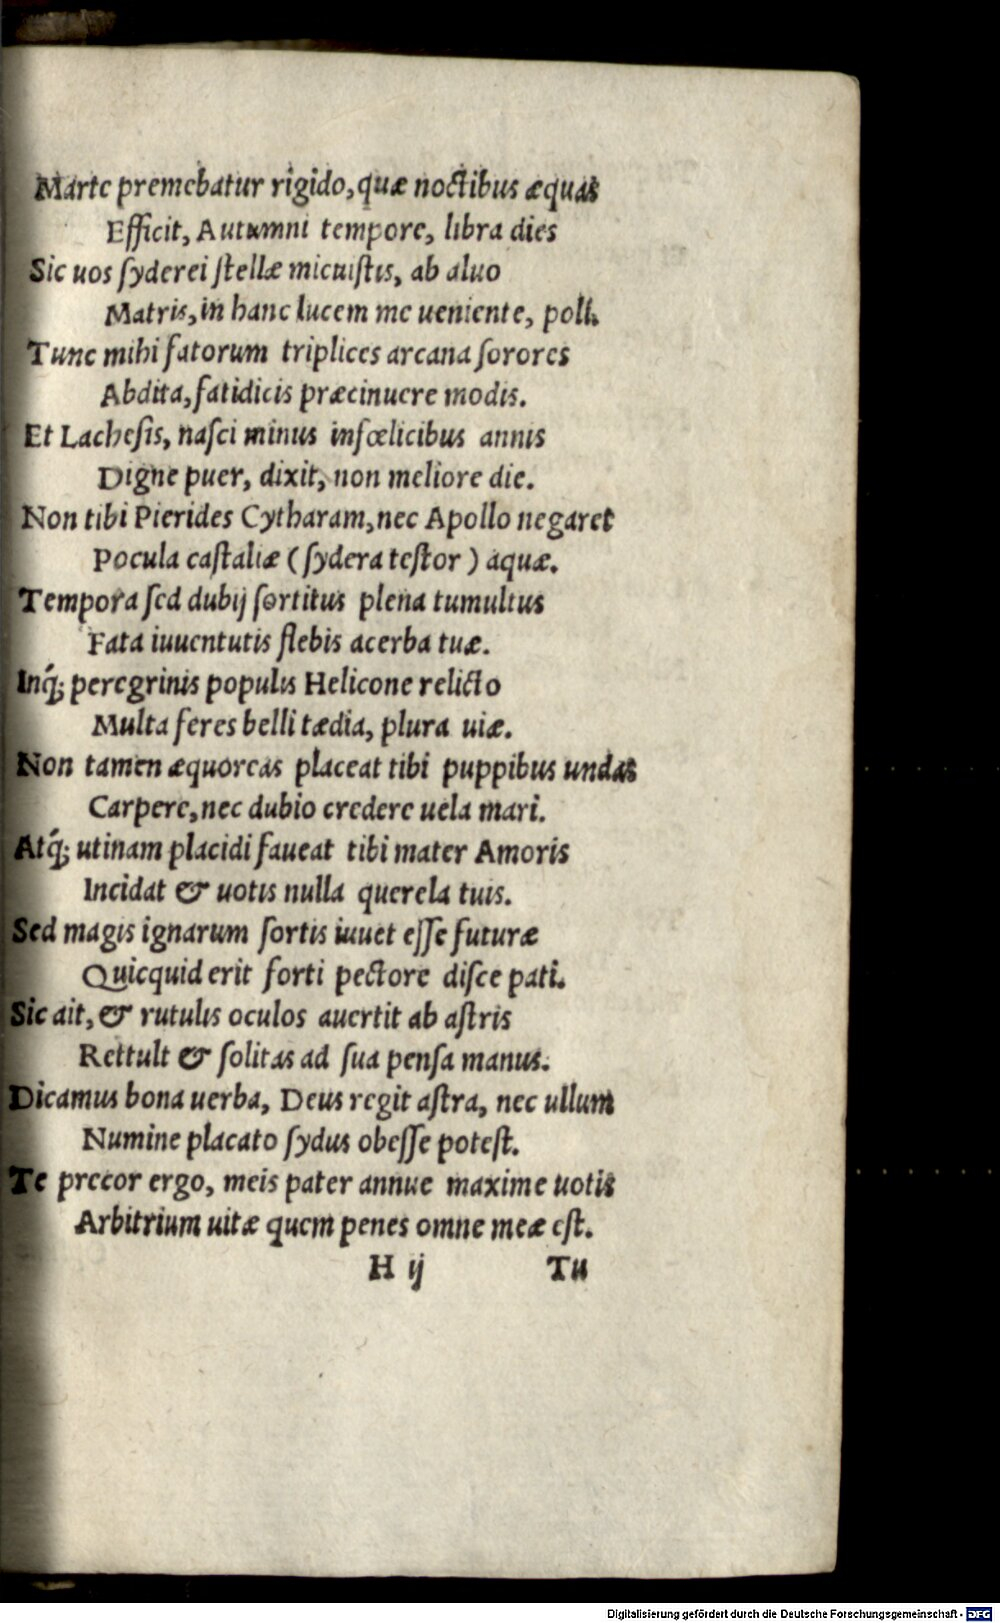 Marte premebatur rigido, quæ noctibus æquas
Efficit, Autumni tempore, libra dies
Sic uos ſyderei ſtellæ micuiſtis, ab aluo
Matris, in hanc lucem me ueniente, poli.
Tunc mihi fatorum triplices arcana ſorores
Abdita, fatidicis præcinuere modis.
Et Lacheſis, naſci minus infœlicibus annis
Digne puer, dixit, non meliore die.
Non tibi Pierides Cytharam, nec Apollo negaret
Pocula caſtaliæ (ſydera teſtor) aquæ.
Tempora ſed dubij ſortitus plena tumultus
Fata iuuentutis flebis acerba tuæ.
Inq́; peregrinis populis Helicone relicto
Multa feres belli tædia, plura uiæ.
Non tamen æquoreas placeat tibi puppibus undas
Carpere, nec dubio credere uela mari.
Atq́; utinam placidi faueat tibi mater Amoris
Incidat & uotis nulla querela tuis.
Sed magis ignarum ſortis iuuet eſſe futuræ
Quicquid erit forti pectore diſce pati.
Sic ait, & rutulis oculos auertit ab aſtris
Rettult & ſolitas ad ſua penſa manus.
Dicamus bona uerba, Deus regit aſtra, nec ullum
Numine placato ſydus obeſſe poteſt.
Te precor ergo, meis pater annue maxime uotis
Arbitrium uitæ quem penes omne meæ eſt.
H ij Tu
Digitalisierung gefördert durch die Deutsche Forschungsgemeinschaft - DFG